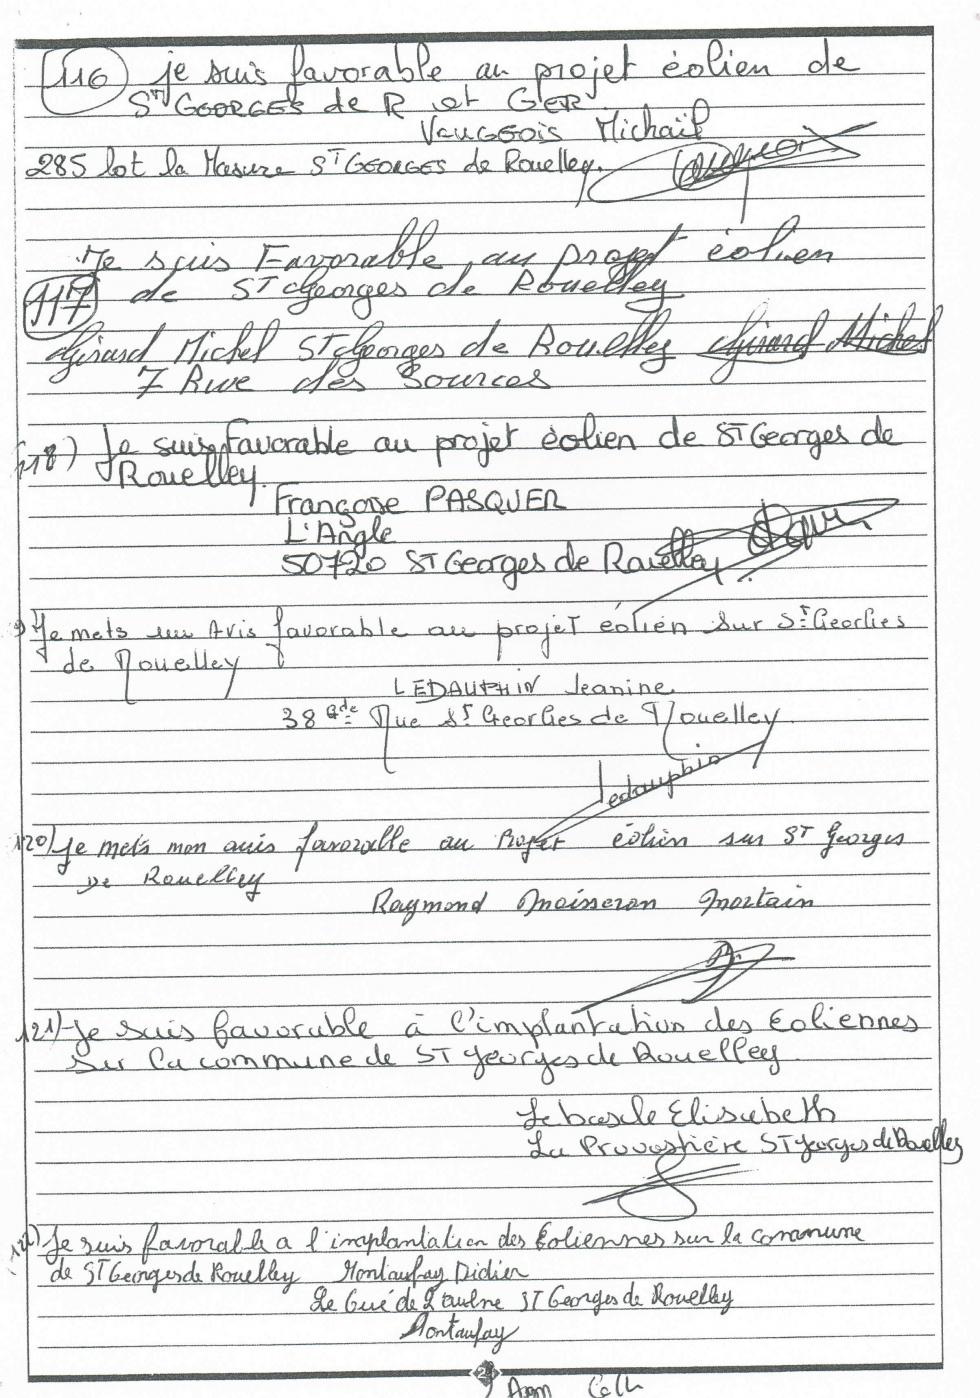 116 je suis favorable au projet éolien de
ST GEORGES de R et GER
VAUGEOIS Michaïl
285 lot la Masure ST GEORGES de Rouelley.
Je suis Favorable au projet éolien
117 de ST Georges de Rouelley
Girard Michel ST Georges de Rouelley Girard Michel
7 Rue des Sources
118) Je suis favorable au projet éolien de ST Georges de
Rouelley.
Françoise PASQUER
L'Angle
50720 ST Georges de Rouelley
9) Je mets un Avis favorable au projet éolien sur St Georges
de Rouelley
LEDAUPHIN Jeanine
38 Gde Rue St Georges de Rouelley
Ledauphin
120) Je mets mon avis favorable au Projet éolien sur ST Georges
De Rouelley
Raymond Moisseron Mortain
121) Je suis favorable à l'implantation des Eoliennes
sur la commune de ST Georges de Rouelley
Lebascle Elisabeth
La Provostière ST Georges de Rouelley
122) Je suis favorable a l'implantation des Eoliennes sur la commune
de ST Georges de Rouelley Montaufay Didier
Le Gué de L'aulne ST Georges de Rouelley
Montaufay